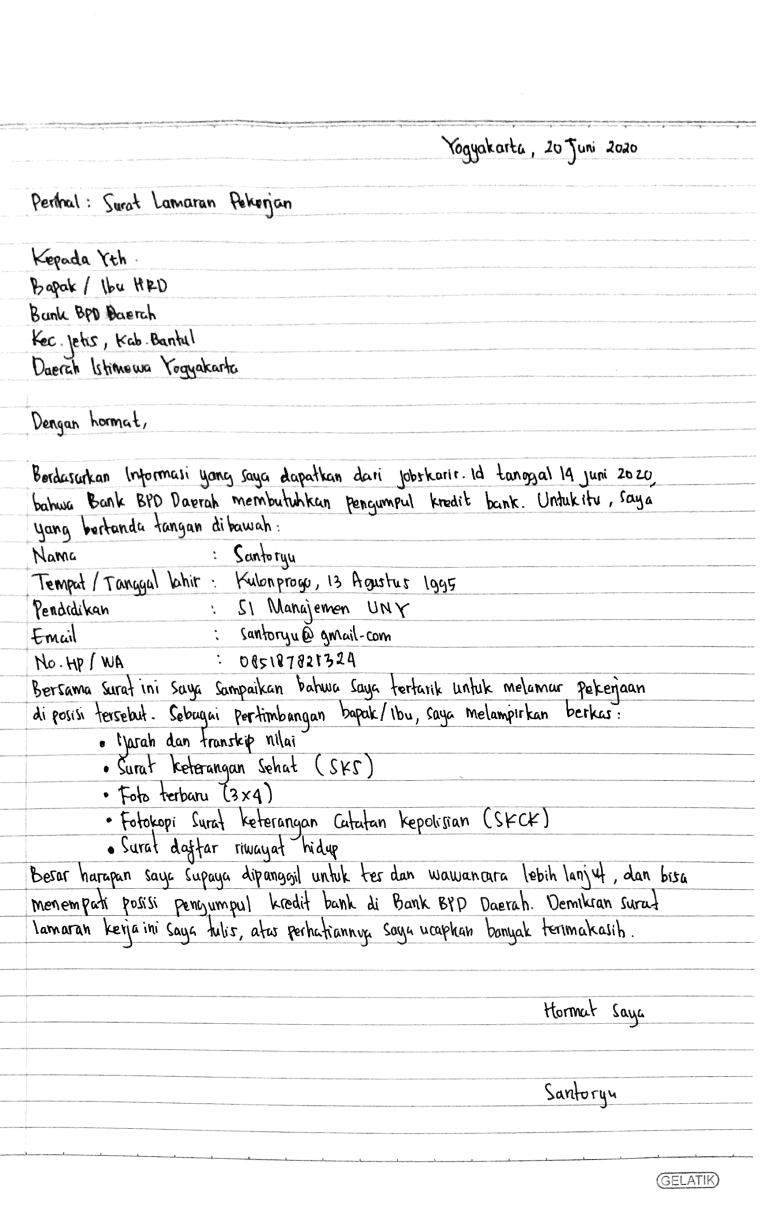 Yogyakarta, 20 Juni 2020
Perihal : Surat Lamaran Pekerjan
Kepada Yth.
Bapak / Ibu HRD
Bank BPD Daerah
Kec. Jetis, Kab. Bantul
Daerah Istimewa Yogyakarta
Dengan hormat,
Berdasarkan Informasi yang saya dapatkan dari jobskarir.id tanggal 14 juni 2020,
bahwa Bank BPD Daerah membutuhkan pengumpul kredit bank. Untuk itu, saya
yang bertanda tangan dibawah :
Nama : Santoryu
Tempat / Tanggal lahir : Kulonprogo, 13 Agustus 1995
Pendidikan : S1 Manajemen UNY
Email : santoryu@gmail.com
No. HP / WA : 085187821324
Bersama surat ini saya sampaikan bahwa saya tertarik untuk melamar pekerjaan
di posisi tersebut. Sebagai pertimbangan bapak/Ibu, saya melampirkan berkas :
• Ijasah dan transkip nilai
• Surat keterangan Sehat (SKS)
• Foto terbaru (3x4)
• Fotokopi Surat keterangan Catatan kepolisian (SKCK)
• Surat daftar riwayat hidup
Besar harapan saya supaya dipanggil untuk tes dan wawancara lebih lanjut, dan bisa
menempati posisi pengumpul kredit bank di Bank BPD Daerah. Demikian surat
lamaran kerja ini saya tulis, atas perhatiannya saya ucapkan banyak terimakasih.
Hormat Saya
Santoryu
GELATIK